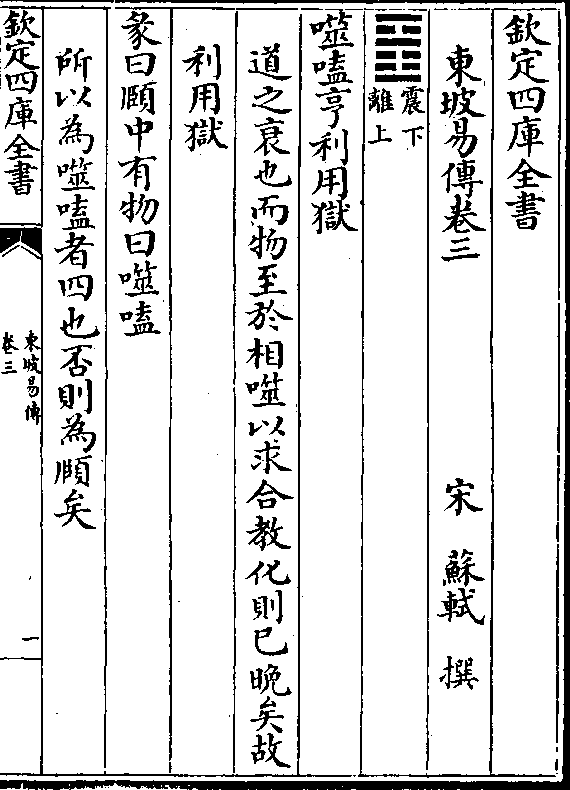 欽定四庫全書
東坡易傳卷三
宋 蘇軾 撰
震下
離上
噬嗑亨利用獄
道之衰也而物至於相噬以求合教化則已晚矣故
利用獄
彖曰頤中有物曰噬嗑
所以為噬嗑者四也否則為頤矣
欽定四庫全書
東坡易傳
卷三
一